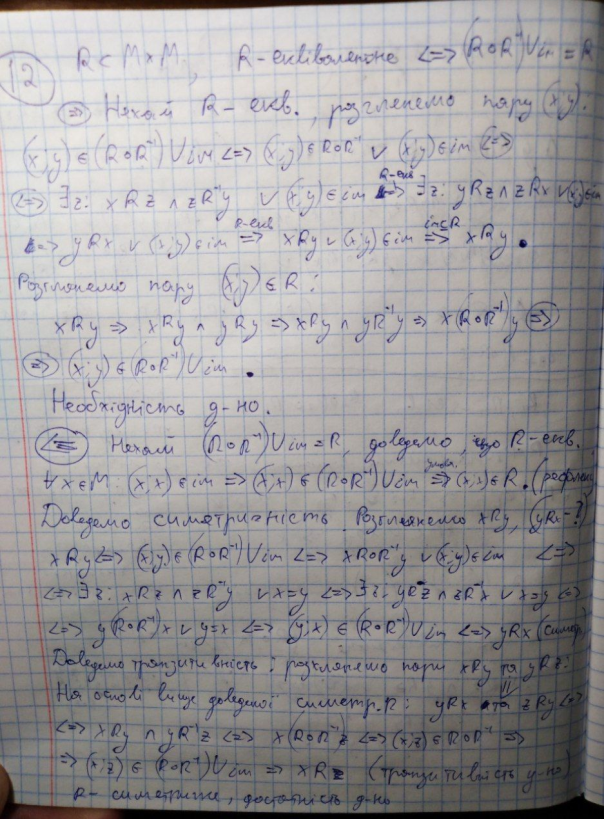 12 R ⊂ M×M, R - еквівалентна <=> (R∘R⁻¹)∪im = R
=> Нехай R - екв., розглянемо пару (x,y).
(x;y) ∈ (R∘R⁻¹)∪im <=> (x;y) ∈ R∘R⁻¹ ∨ (x;y) ∈ im <=>
<=> ∃z: xRz ∧ zR⁻¹y ∨ (x,y) ∈ im <=> R-екв ∃z: yRz ∧ zRx ∨ (x;y) ∈ im
<=> yRx ∨ (x;y) ∈ im => R-екв xRy ∨ (x;y) ∈ im => im⊂R xRy.
Розглянемо пару (x,y) ∈ R:
xRy => xRy ∧ yRy => xRy ∧ yR⁻¹y => x(R∘R⁻¹)y =>
=> (x;y) ∈ (R∘R⁻¹)∪im.
Необхідність д-но.
<= Нехай (R∘R⁻¹)∪im = R, доведемо, що R - екв.
∀x∈M: (x,x) ∈ im => (x,x) ∈ (R∘R⁻¹)∪im => умова (x,x) ∈ R.
Доведемо симетричність. Розглянемо xRy, (yRx-?)
xRy <=> (x;y) ∈ (R∘R⁻¹)∪im <=> xR∘R⁻¹y ∨ (x;y) ∈ im <=>
<=> ∃z: xRz ∧ zR⁻¹y ∨ x=y <=> ∃z: yRz ∧ zR⁻¹x ∨ x=y <=>
<=> y(R∘R⁻¹)x ∨ y=x <=> (y;x) ∈ (R∘R⁻¹)∪im <=> yRx (симетр.)
Доведемо транзитивність: розглянемо пари xRy та yRz:
На основі вище доведеної симетр. R: yRx та zRy <=>
<=> xRy ∧ yR⁻¹z <=> x(R∘R⁻¹)z <=> (x;z) ∈ R∘R⁻¹ =>
=> (x;z) ∈ (R∘R⁻¹)∪im => xRz (транзитивність д-но)
R - симетричне, достатність д-но